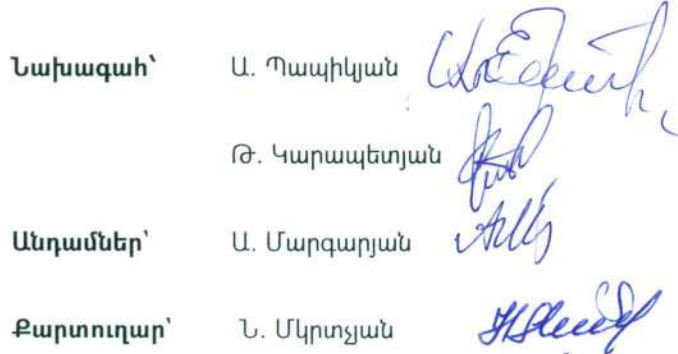 Նախագահ՝ Ա. Պապիկյան
Թ. Կարապետյան
Անդամներ՝ Ա. Մարգարյան
Քարտուղար՝ Ն. Մկրտչյան